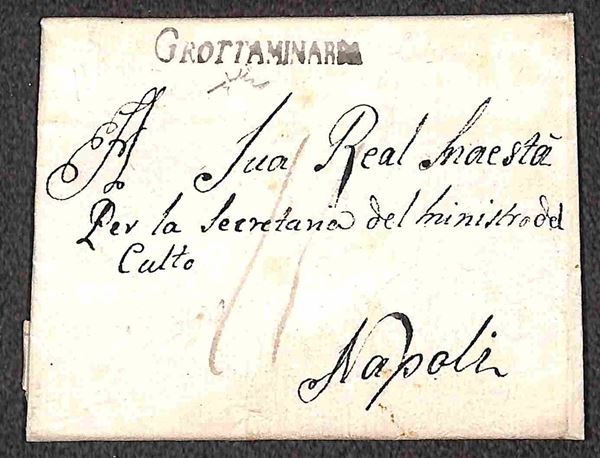 GROTTAMINARDA
A Sua Real Maestà
Per la Secretaria del Ministro del
Culto
Napoli